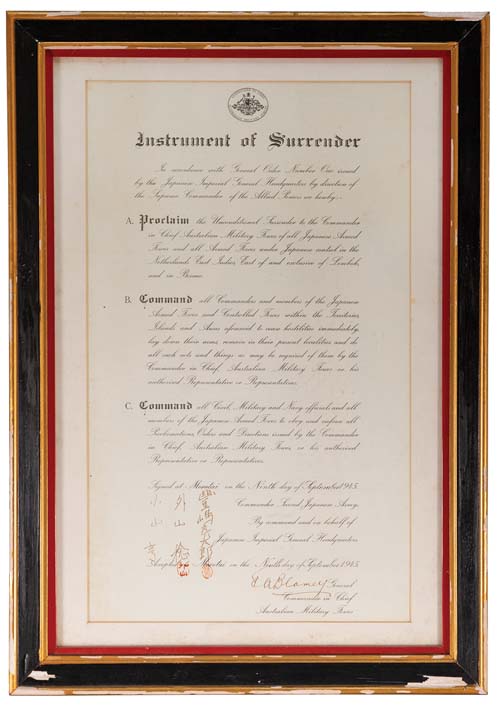 Instrument of Surrender
In accordance with General Order Number One issued
by the Japanese Imperial General Headquarters by direction of
the Supreme Commander of the Allied Powers we hereby:-
A. Proclaim the Unconditional Surrender to the Commander
in Chief Australian Military Forces of all Japanese Armed
Forces and all Armed Forces under Japanese control in the
Netherlands East Indies, East of and exclusive of Lombok,
and in Borneo.
B. Command all Commanders and members of the Japanese
Armed Forces and Controlled Forces within the Territories,
Islands and Areas aforesaid to cease hostilities immediately,
lay down their arms, remain in their present localities and do
all such acts and things as may be required of them by the
Commander in Chief, Australian Military Forces or his
authorised Representative or Representatives.
C. Command all Civil, Military and Navy officials and all
members of the Japanese Armed Forces to obey and enforce all
Proclamations, Orders and Directions issued by the Commander
in Chief, Australian Military Forces or his authorised
Representative or Representatives.
Signed at Morotai on the Ninth day of September 1945.
Commander Second Japanese Army.
By command and in behalf of
Japanese Imperial General Headquarters
小山 外山
Morotai on the Ninth day of September 1945.
T A Blamey General
Commander in Chief
Australian Military Forces